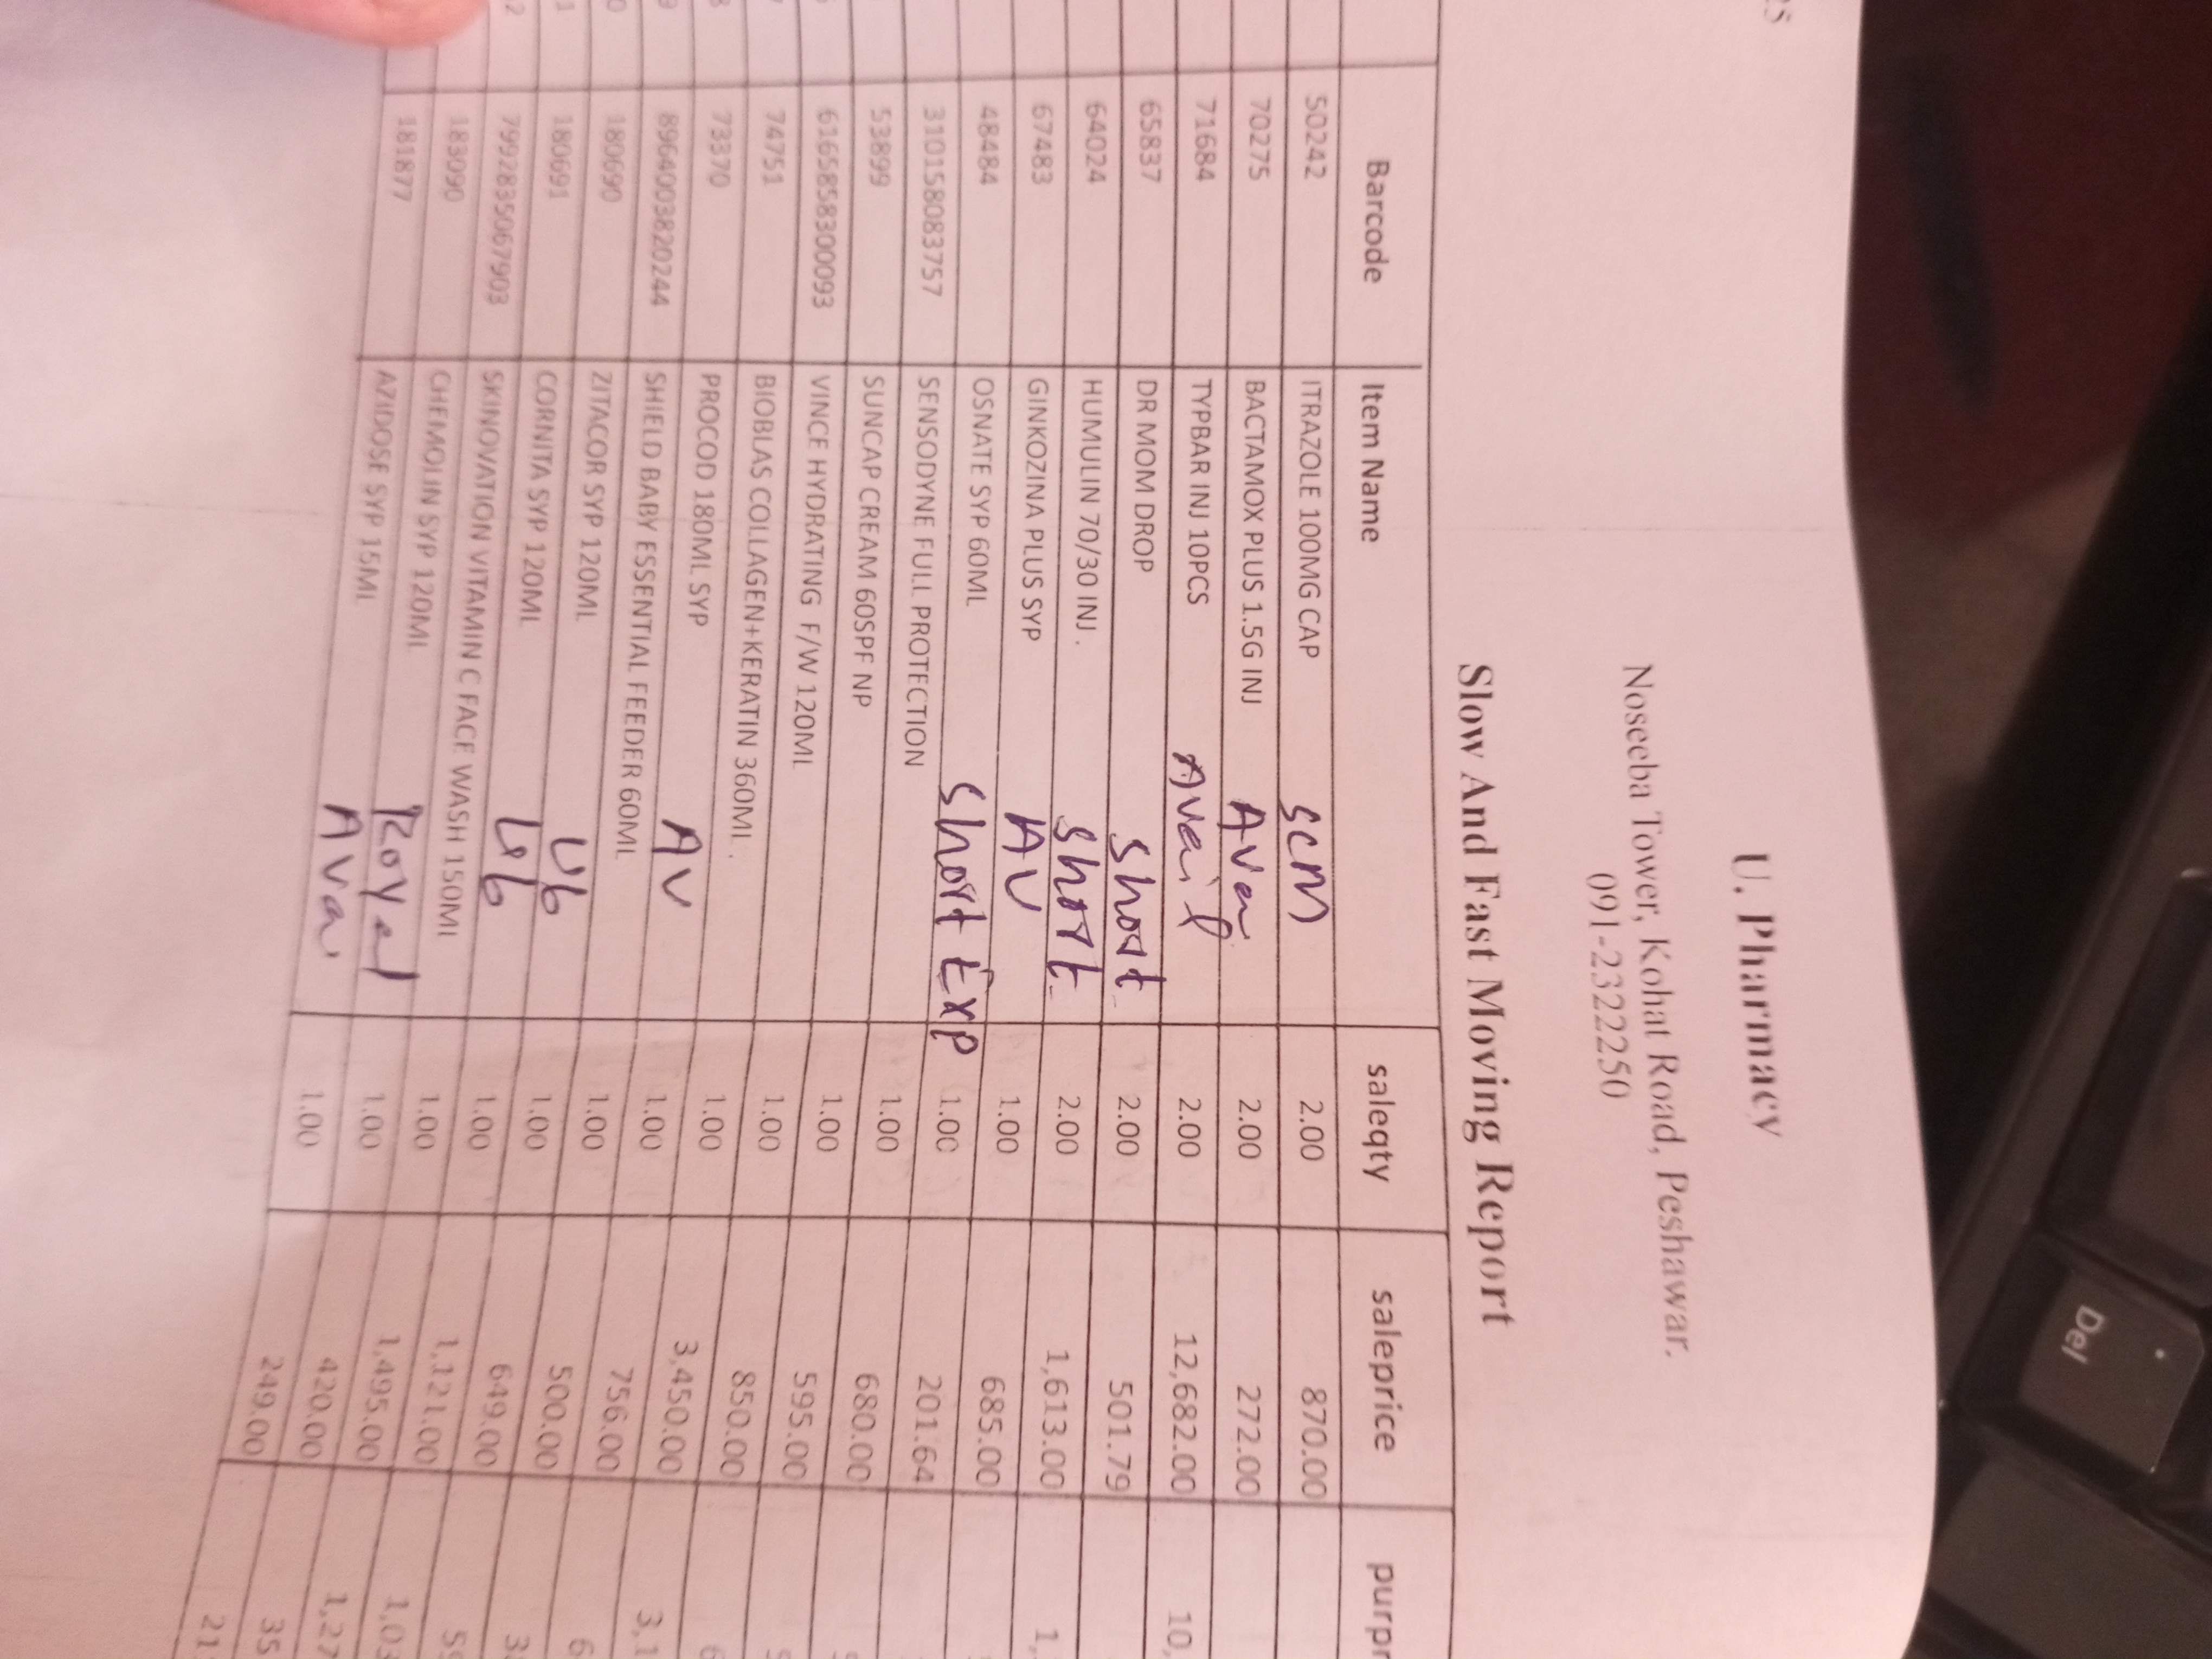 U. Pharmacy
Noseeba Tower, Kohat Road, Peshawar.
091-2322250
Slow And Fast Moving Report
Barcode Item Name saleqty saleprice purpr
50242 ITRAZOLE 100MG CAP scm 2.00 870.00
70275 BACTAMOX PLUS 1.5G INJ Ava 2.00 272.00
71684 TYPBAR INJ 10PCS Avail 2.00 12,682.00 10,
65837 DR MOM DROP Short 2.00 501.79
64024 HUMULIN 70/30 INJ . Short 2.00 1,613.00 1,
67483 GINKOZINA PLUS SYP AV 1.00 685.00
48484 OSNATE SYP 60ML Short Exp 1.00 201.64
310158083757 SENSODYNE FULL PROTECTION 1.00 680.00
53899 SUNCAP CREAM 60SPF NP 1.00 595.00
6165858300093 VINCE HYDRATING F/W 120ML 1.00 850.00
74751 BIOBLAS COLLAGEN+KERATIN 360ML . 1.00 3,450.00 3,1
73370 PROCOD 180ML SYP AV 1.00 756.00 6
8964003820244 SHIELD BABY ESSENTIAL FEEDER 60ML 1.00 500.00 3
180690 ZITACOR SYP 120ML U6 1.00 649.00 59
180691 CORNITA SYP 120ML U6 1.00 1,121.00 1,03
7992835067903 SKINOVATION VITAMIN C FACE WASH 150ML 1.00 1,495.00 1,27
183090 CHEMOLIN SYP 120ML Royal 1.00 420.00 35
181877 AZIDOSE SYP 15ML Ava 1.00 249.00 21
Del